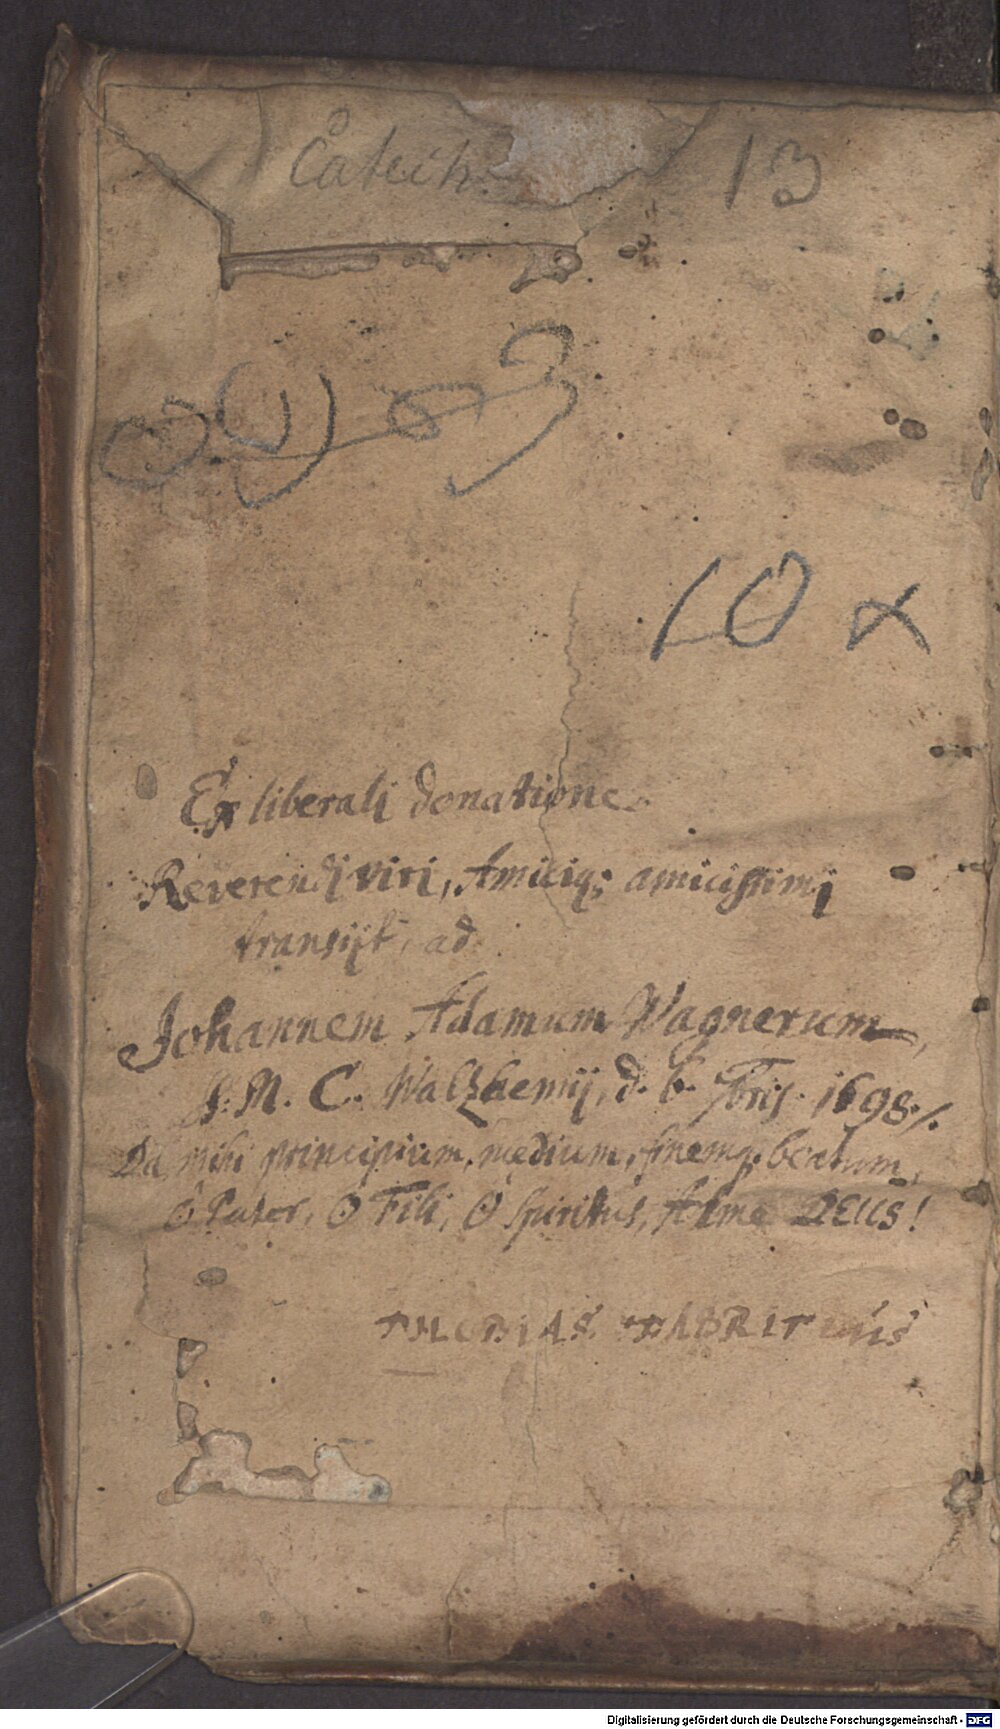 Catech. 13
10 x
Ex liberali donatione
Reverendi viri, Amiciq; amicissimi
transijt, ad
Johannem Adamum Wagnerum,
M. C. d. 6. 1698.
Da mihi principium, medium, finemq; beatum,
O Pater, O Fili, O Spiritus, Alme DEUS!
Digitalisierung gefördert durch die Deutsche Forschungsgemeinschaft - DFG